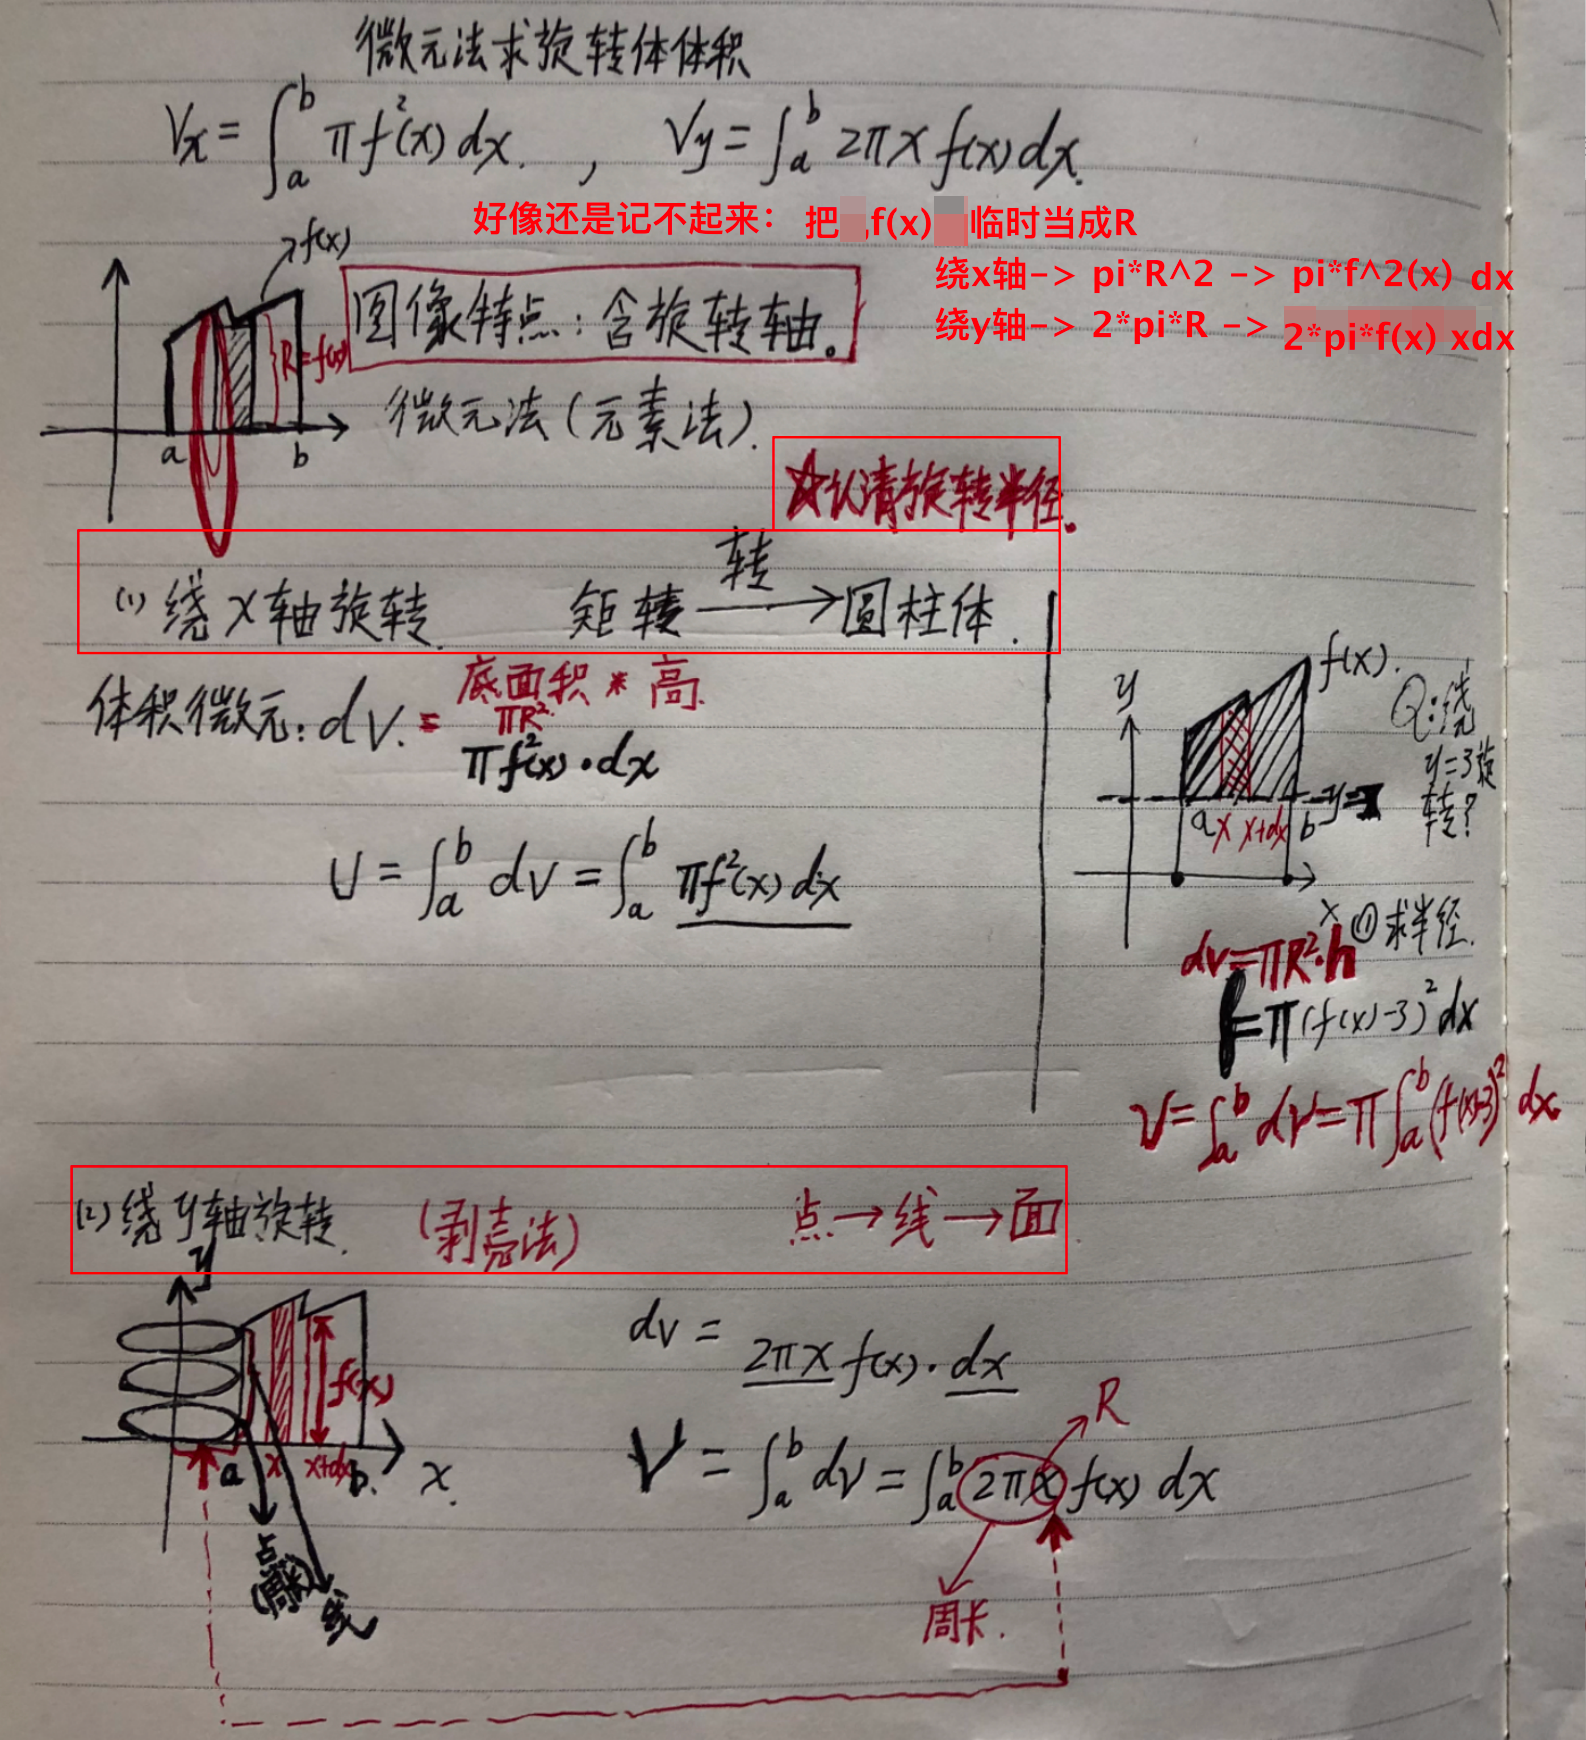 微元法求旋转体体积
Vx = ∫_a^b πf²(x)dx. , Vy = ∫_a^b 2πx f(x)dx.
好像还是记不起来： 把 f(x) 临时当成R
绕x轴-> pi*R^2 -> pi*f^2(x) dx
绕y轴-> 2*pi*R -> 2*pi*f(x) xdx
f(x)
图像特点：含旋转轴。
R=f(x)
微元法(元素法).
a b
☆认清旋转半径.
(1) 绕x轴旋转. 矩转 转→ 圆柱体.
体积微元: dV. = 底面积 * 高.
πR²
πf²(x)·dx
U = ∫_a^b dV = ∫_a^b πf²(x)dx
y
f(x).
Q:绕
y=3旋
转?
y=
a x x+dx b
x
① 求半径.
dv=πR²·h
=π(f(x)-3)²dx
V=∫_a^b dV=π∫_a^b(f(x)-3)²dx
(2) 绕y轴旋转. (剥壳法) 点→线→面
y
f(x)
a x x+dx b. x.
点
线
dv = 2πx f(x)·dx
R
V = ∫_a^b dV = ∫_a^b 2πx f(x) dx
周长.